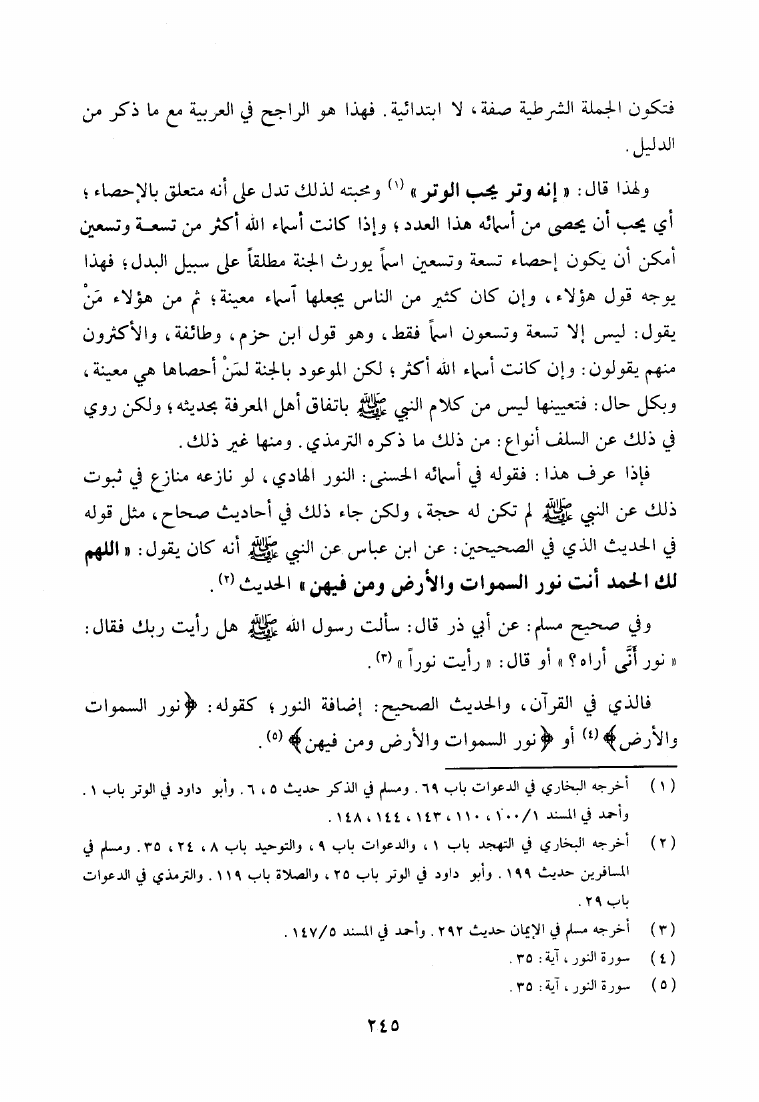 فتكون الجملة الشرطية صفة، لا ابتدائية. فهذا هو الراجح في العربية مع ما ذكر من
الدليل.
ولهذا قال: « إنه وتر يحب الوتر » (١) ومحبته لذلك تدل على أنه متعلق بالإحصاء ؛
أي يحب أن يحصى من أسمائه هذا العدد ؛ وإذا كانت أسماء الله أكثر من تسعة وتسعين
أمكن أن يكون إحصاء تسعة وتسعين اسماً يورث الجنة مطلقاً على سبيل البدل؛ فهذا
يوجه قول هؤلاء، وإن كان كثير من الناس يجعلها أسماء معينة؛ ثم من هؤلاء مَنْ
يقول: ليس إلا تسعة وتسعون اسماً فقط، وهو قول ابن حزم، وطائفة، والأكثرون
منهم يقولون: وإن كانت أسماء الله أكثر؛ لكن الموعود بالجنة لمَنْ أحصاها هي معينة،
وبكل حال: فتعيينها ليس من كلام النبي ﷺ باتفاق أهل المعرفة بحديثه؛ ولكن روي
في ذلك عن السلف أنواع: من ذلك ما ذكره الترمذي. ومنها غير ذلك.
فإذا عرف هذا: فقوله في أسمائه الحسنى: النور الهادي، لو نازعه منازع في ثبوت
ذلك عن النبي ﷺ لم تكن له حجة، ولكن جاء ذلك في أحاديث صحاح، مثل قوله
في الحديث الذي في الصحيحين: عن ابن عباس عن النبي ﷺ أنه كان يقول: « اللهم
لك الحمد أنت نور السموات والأرض ومن فيهن» الحديث (٢).
وفي صحيح مسلم: عن أبي ذر قال: سألت رسول الله ﷺ هل رأيت ربك فقال:
« نور أَنَّى أراه؟ » أو قال: « رأيت نوراً » (٣).
فالذي في القرآن، والحديث الصحيح: إضافة النور؛ كقوله: ﴿نور السموات
والأرض﴾ (٤) أو ﴿نور السموات والأرض ومن فيهن﴾ (٥).
(١) أخرجه البخاري في الدعوات باب ٦٩. ومسلم في الذكر حديث ٥، ٦. وأبو داود في الوتر باب ١.
وأحمد في المسند ١/ ١٠٠، ١١٠، ١٤٣، ١٤٤، ١٤٨.
(٢) أخرجه البخاري في التهجد باب ١، والدعوات باب ٩، والتوحيد باب ٨، ٢٤، ٣٥. ومسلم في
المسافرين حديث ١٩٩. وأبو داود في الوتر باب ٢٥، والصلاة باب ١١٩. والترمذي في الدعوات
باب ٢٩.
(٣) أخرجه مسلم في الإيمان حديث ٢٩٢. وأحمد في المسند ٥/ ١٤٧.
(٤) سورة النور، آية: ٣٥.
(٥) سورة النور، آية: ٣٥.
٢٤٥